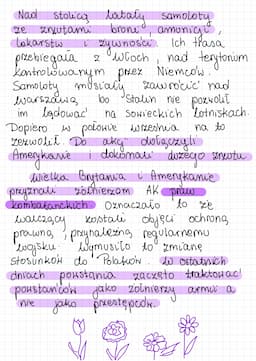 Nad stolicą latały samoloty
ze zrzutami broni, amunicji,
lekarstw i żywności. Ich trasa
przebiegała z Włoch, nad terytorium
kontrolowanym przez Niemców.
Samoloty musiały zawrócić nad
Warszawą, bo Stalin nie pozwolił
im lądować na sowieckich lotniskach.
Dopiero w połowie września na to
zezwolił. Do akcji dołączyli
Amerykanie i dokonali dużego zrzutu
Wielka Brytania i Amerykanie
przyznali żołnierzom AK praw
kombatanckich. Oznaczało to że
walczący zostali objęci ochroną
prawną, przynależną regularnemu
wojsku. Wymusiło to zmianę
stosunków do Polaków. W ostatnich
dniach powstania zaczęto traktować
powstańców jako żołnierzy armii a
nie jako przestępców.